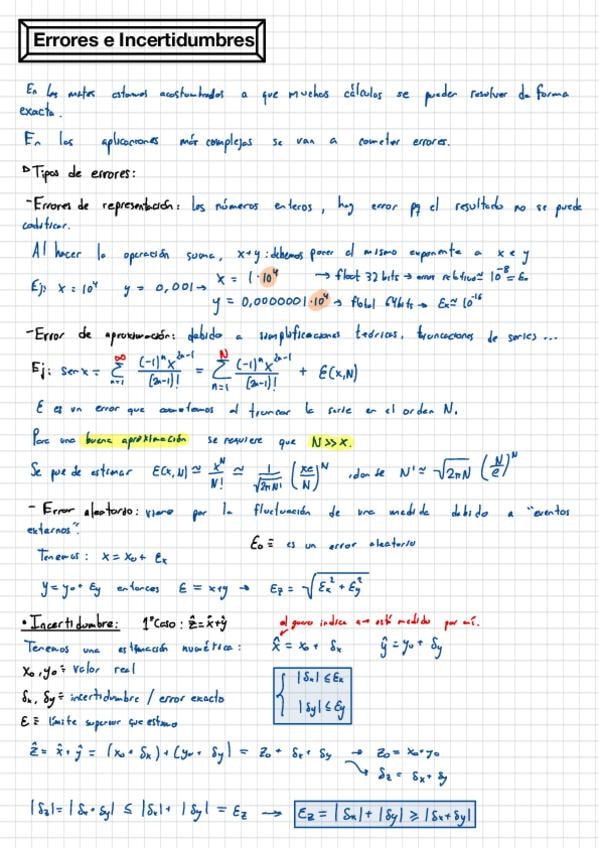 Errores e Incertidumbres
En las mates estamos acostumbrados a que muchos cálculos se pueden resolver de forma
exacta.
En las aplicaciones más complejas se van a cometer errores.
▷Tipos de errores:
-Errores de representación: los números enteros, hay error pq el resultado no se puede
codificar.
Al hacer la operación suma, x+y: debemos poner el mismo exponente a x e y
Ej: x = 10⁴ y = 0,001 → x = 1·10⁴ → float 32 bits → error relativo ≃ 10⁻⁸ = Eₓ
y = 0,0000001·10⁴ → float 64 bits → Eₓ ≃ 10⁻¹⁶
-Error de aproximación: debido a simplificaciones teóricas, truncaciones de series ...
Ej: sen x = ∑_{n=1}^{∞} (-1)ⁿ x²ⁿ⁻¹/(2n-1)! = ∑_{n=1}^{N} (-1)ⁿ x²ⁿ⁻¹/(2n-1)! + E(x,N)
E es un error que cometemos al truncar la serie en el orden N.
Para una buena aproximación se requiere que N>>x.
Se puede estimar E(x,N) ≃ xᴺ/N! ≃ 1/√(2πN) (xe/N)ᴺ , donde N! ≃ √(2πN) (N/e)ᴺ
- Error aleatorio: viene por la fluctuación de una medida debido a "eventos
externos".
E₀ ≡ es un error aleatorio
Tenemos: x = x₀ + Eₓ
y = y₀ + Ey entonces E = x+y → E_z = √(Eₓ² + Ey²)
• Incertidumbre: 1º Caso: ẑ = x̂ + ŷ el gorro indica q → está medido por mí.
Tenemos una estimación numérica: x̂ = x₀ + δₓ ŷ = y₀ + δy
x₀, y₀ ≡ valor real
δₓ, δy ≡ incertidumbre / error exacto
E ≡ límite superior que estimo
|δₓ| ≤ Eₓ
|δy| ≤ Ey
ẑ = x̂ + ŷ = (x₀ + δₓ) + (y₀ + δy) = z₀ + δₓ + δy → z₀ = x₀ + y₀
→ δ_z = δₓ + δy
|δ_z| = |δₓ + δy| ≤ |δₓ| + |δy| = E_z → E_z = |δₓ| + |δy| ≥ |δₓ + δy|